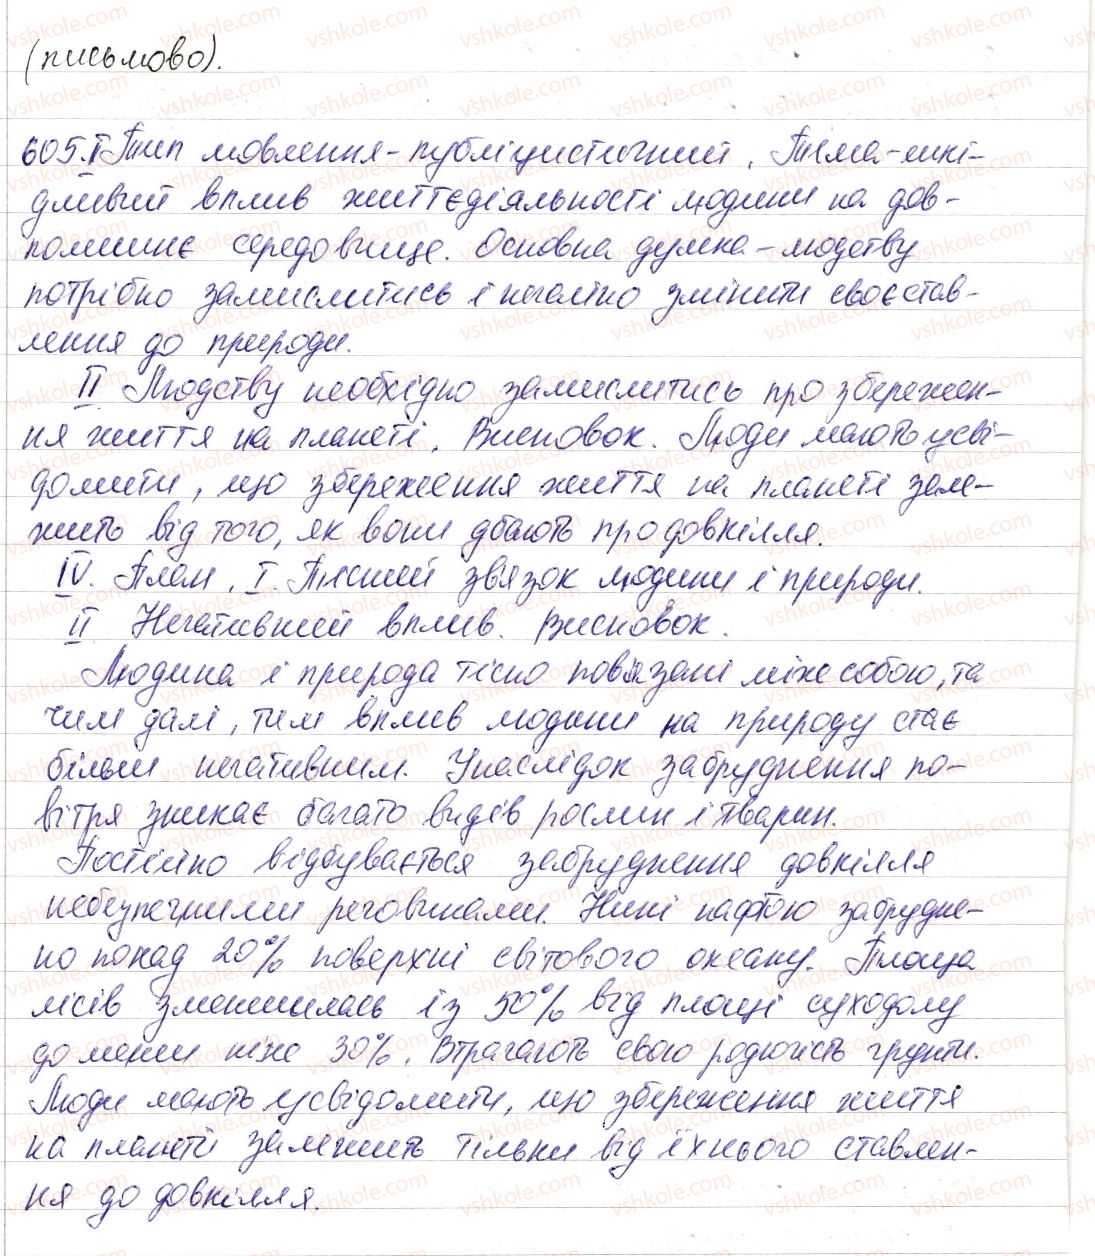 (письмово).
605.I Тип мовлення-публіцистичний. Тема-шкі-
дливий вплив життєдіяльності людини на дов-
колишнє середовище. Основна думка-людству
потрібно замислитись і негайно змінити своє став-
лення до природи.
II Людству необхідно замислитись про збережен-
ня життя на планеті. Висновок. Люди мають усві-
домити, що збереження життя на планеті зале-
жить від того, як вони дбають про довкілля.
IV. План. I. Тісний зв'язок людини і природи.
II Негативний вплив. Висновок.
Людина і природа тісно пов'язані між собою, та
чим далі, тим вплив людини на природу стає
більш негативним. Унаслідок забруднення по-
вітря зникає багато видів рослин і тварин.
Постійно відбувається забруднення довкілля
небезпечними речовинами. Нині нафтою забрудне-
но понад 20% поверхні світового океану. Площа
лісів зменшилась із 50% від площі суходолу
до менш ніж 30%. Втрачають свою родючість ґрунти.
Люди мають усвідомити, що збереження життя
на планеті залежить тільки від їхнього ставлен-
ня до довкілля.